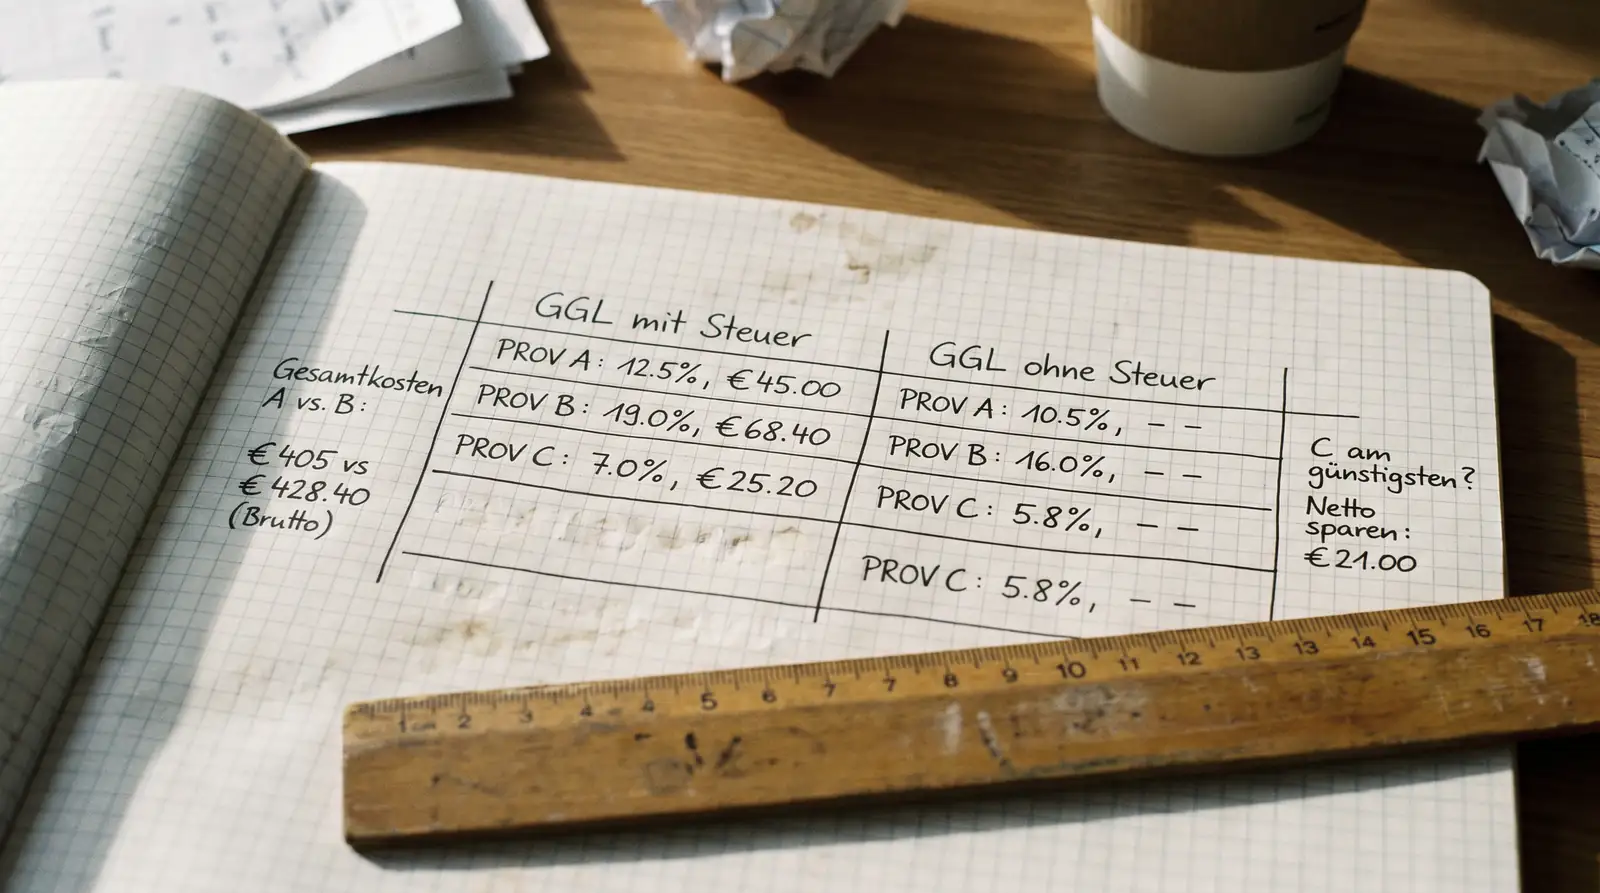 GGL mit Steuer
PROV A: 12.5%, €45.00
PROV B: 19.0%, €68.40
PROV C: 7.0%, €25.20
GGL ohne Steuer
PROV A: 10.5%, – –
PROV B: 16.0%, – –
PROV C: 5.8%, – –
PROV C: 5.8%, – –
Gesamtkosten
A vs. B:
€405 vs
€428.40
(Brutto)
C am
günstigsten?
Netto
sparen:
€21.00
1 cm 2 3 4 4 5 6 7 7 8 9 10 11 12 13 13 14 15 16 17 18